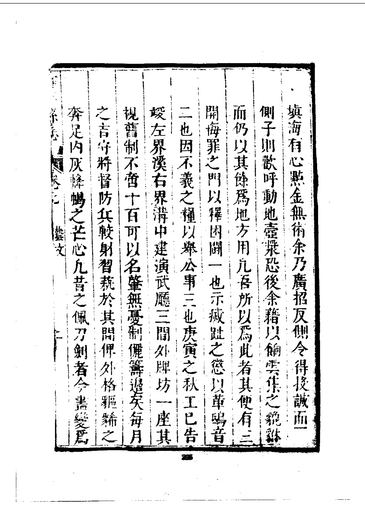 填海有心點金無術余乃廣招反側令得投誠而一
側子則歡呼動地壺漿恐後余藉以餉雲集之貔貅
而仍以其餘爲地方用凡吾所以爲此者其便有三
開悔罪之門以釋困鬭一也示滅趾之懲以革鴟音
二也因不義之糧以舉公事三也庚寅之秋工已告
竣左界溪右界溝中建演武廳三間外牌坊一座其
視舊制不啻十百可以名肇無憂制儷籌邊矣每月
之吉守將督防兵較射習藝於其間俾外格
奔足内灰 鴞之芒心凡昔之佩刀劍者今盡變爲
藝文